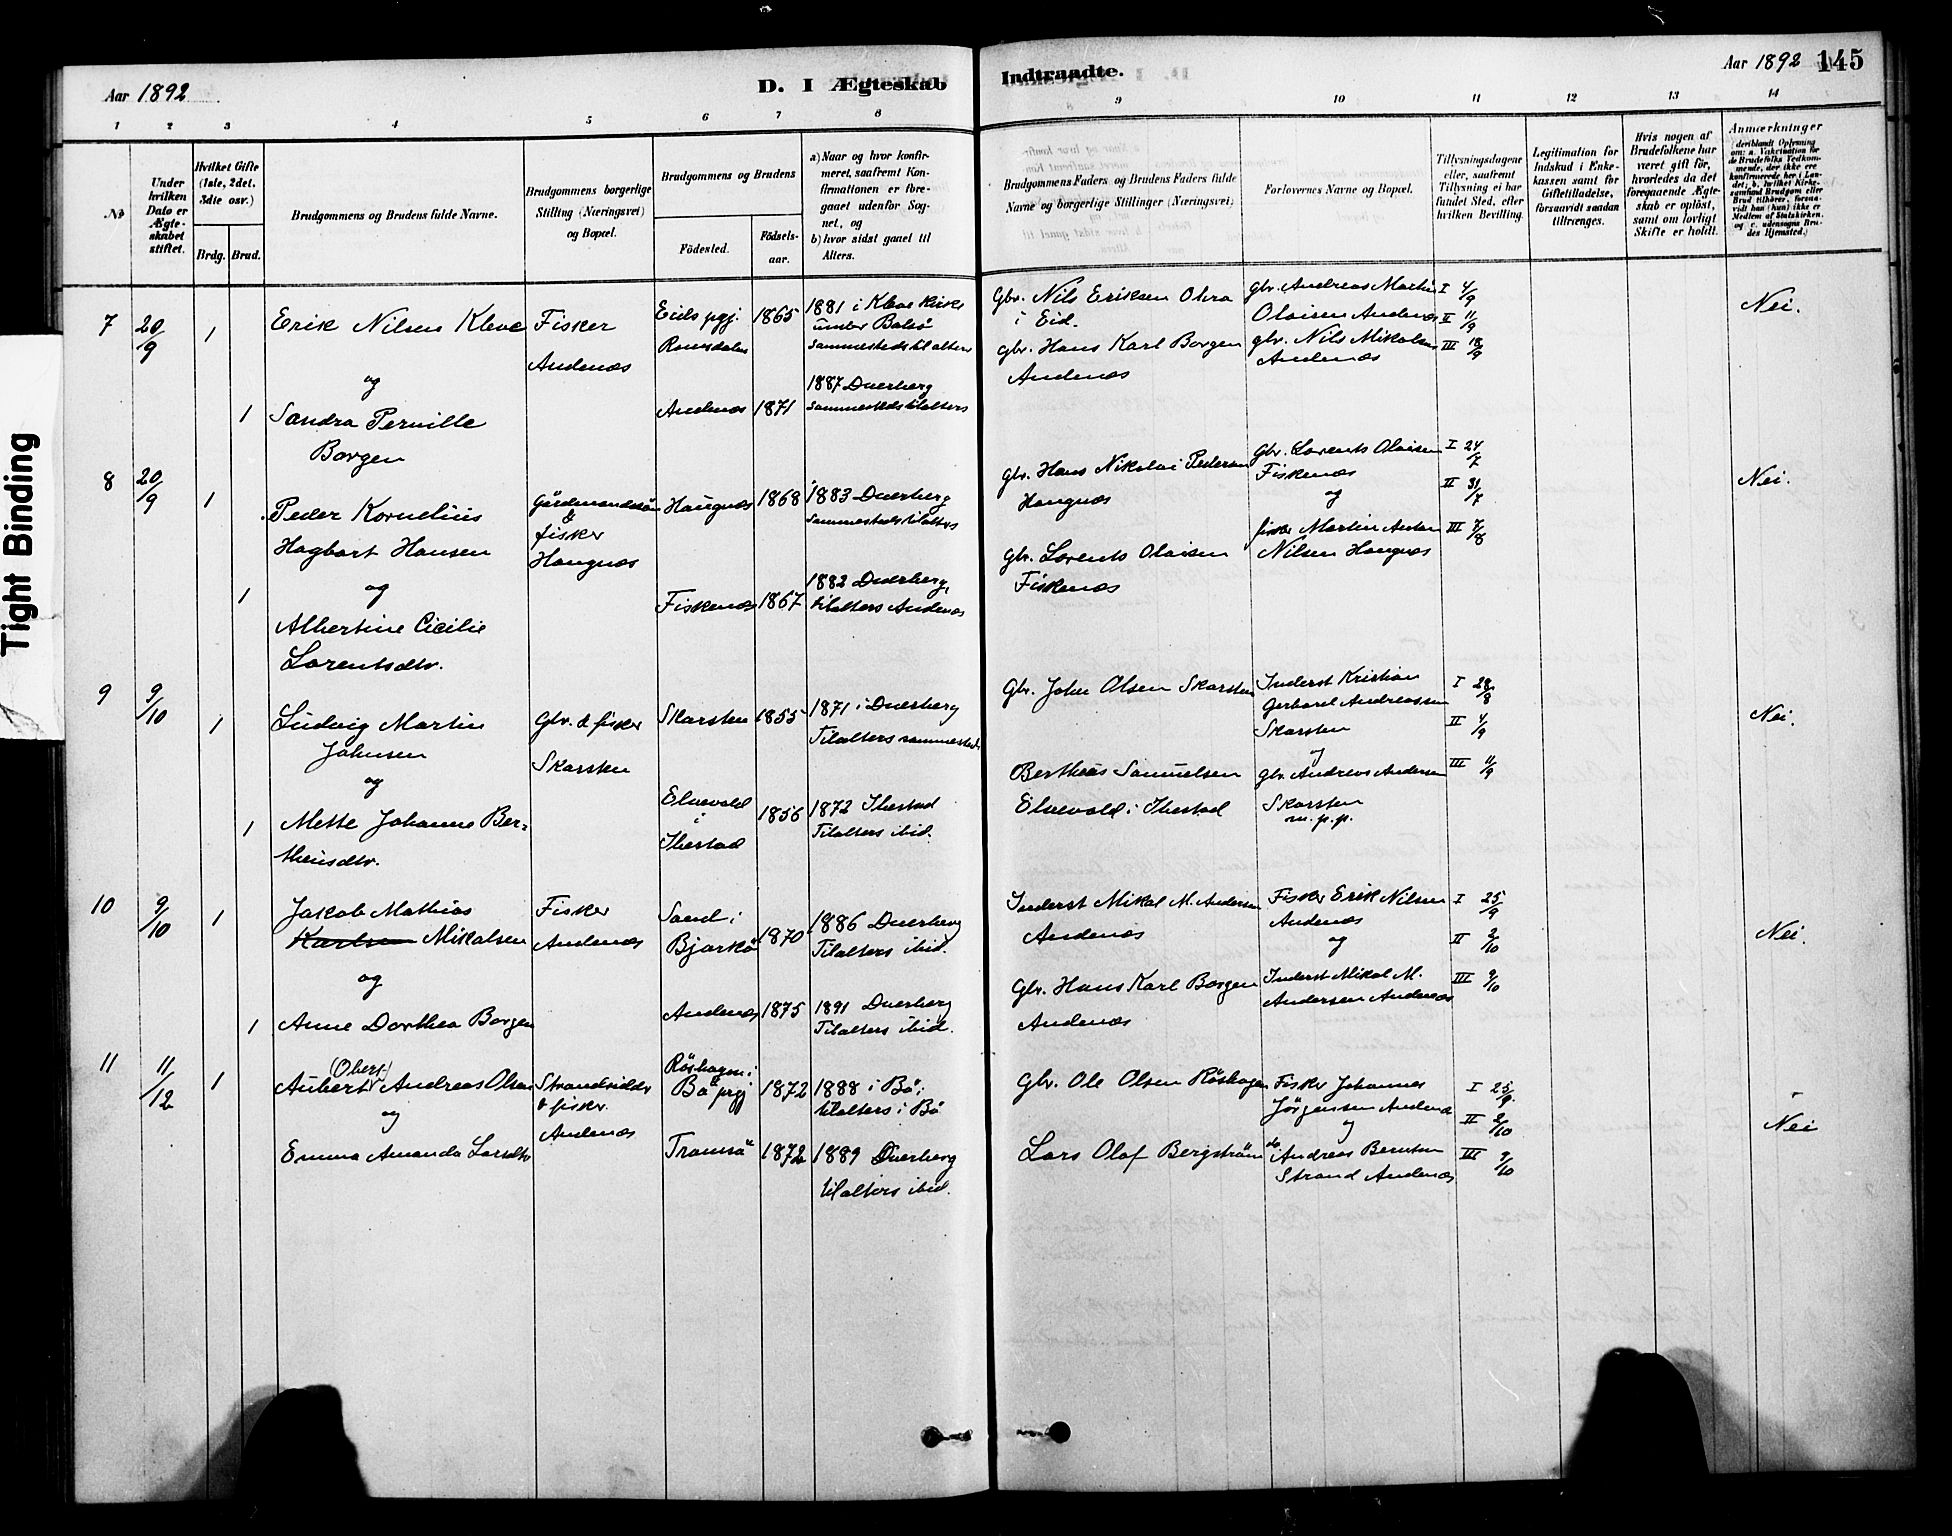 Tight Binding
Aar 1892
D. I Ægteskab
Indtraadte.
Aar 1892 145
1 2 3 4 5 6 7 8
9 10 11 12 13 14
No
Under hvilken Dato er Ægteskabet stiftet.
Hvilket Gifte (1ste, 2det, 3dte osv.)
Brdg. Brud.
Brudgommens og Brudens fulde Navne.
Brudgommens borgerlige Stilling (Næringsvei) og Bopæl.
Brudgommens og Brudens
Fødested. Fødselsaar.
a) Naar og hvor konfirmeret, saafremt Konfirmationen er foregaaet udenfor Sognet, og
b) hvor sidst gaaet til Alters.
Brudgommens Faders og Brudens Faders fulde Navne og borgerlige Stillinger (Næringsvei)
Forlovernes Navne og Bopæl.
Tillysningsdagene eller, saafremt Tillysning ei har fundet Sted, efter hvilken Bevilling.
Legitimation for Indskud i Enkekassen samt for Giftetilladelse, forsaavidt saadan tiltrænges.
Hvis nogen af Brudefolkene har været gift før, hvorledes da det foregaaende Ægteskab er opløst, samt om lovligt Skifte er holdt.
Anmærkninger
(deriblandt Oplysning om: a. Vakcination for de Brudefolks Vedkommende, der ikke ere konfirmerede her i Landet; b. hvilket Kirkesamfund Brudgom eller Brud tilhører, forsaavidt han (hun) ikke er Medlem af Statskirken, og c. udensogns Brudes Hjemsted.)
7 20/9 1 Erik Nilsen Kleve
og
1 Sandra Pernille
Borgen
Fisker
Andenæs
Eids pgj.
Romsdalen
1865
1881 i Kleve Kirke
under Bolsö
sammesteds til alters
Andenæs 1871
1887 Dverberg
sammesteds tilalters
Gbr. Nils Eriksen Okra
i Eid.
gbr. Hans Karl Borgen
Andenæs
gbr. Andreas Martin
Olaisen Andenæs
gbr. Nils Mikalsen
Andenæs
I 4/9
II 11/9
III 18/9
Nei.
8 20/9 1 Peder Kornelius
Hagbart Hansen
og
1 Albertine Cicilie
Lorentsdtr.
Gårdmandssön
&
fisker
Haugnæs
Haugnæs 1868
1883 Dverberg
sammesteds tilalters
Fiskenæs 1867
1882 Dverberg,
tilalters Andenæs
Gbr. Hans Nikolai Pedersen
Haugnæs
Gbr. Lorents Olaisen
Fiskenæs
Gbr. Lorents Olaisen
Fiskenæs
og
fisker Martin Anton
Nilsen Haugnæs
I 24/7
II 31/7
III 7/8
Nei.
9 9/10 1 Ludvig Martin
Johnsen
og
1 Mette Johanne Ber-
theusdtr.
Gbr. & fisker
Skarsten
Skarsten 1855
1871 i Dverberg
Tilalters sammesteds
Elvevold
i
Ibestad
1856
1872 Ibestad
Tilalters ibid.
Gbr. John Olsen Skarsten
Bertheus Samuelsen
Elvevold i Ibestad
Inderst Kristian
Gerhard Andreassen
Skarsten
og
gbr. Andreas Andersen
Skarsten
m. p. p.
I 28/8
II 4/9
III 11/9
Nei.
10 9/10 1 Jakob Mathias
Karlsen Mikalsen
og
1 Anne Dorthea Borgen
Fisker
Andenæs
Sand i
Bjarkö
1870
1886 Dverberg
Tilalters ibid.
Andenæs 1875
1891 Dverberg
Tilalters ibid.
Inderst Mikal M. Andersen
Andenæs
Gbr. Hans Karl Borgen
Andenæs
Fisker Erik Nilsen
Andenæs
og
Inderst Mikal M.
Andersen Andenæs
I 25/9
II 2/10
III 9/10
Nei.
11 11/12 1 Aubert Andreas Olsen
og
Emma Amanda Larsdtr
Strandsidder
& fisker
Andenæs
Röshagen i
Bö prgj
1872
1888 i Bö;
tilalters i Bö
Tromsö 1872
1889 Dverberg
tilalters ibid.
Gbr. Ole Olsen Röshagen
Lars Olaf Bergström
Fisker Johannes
Jörgensen Andenæs
og
do Andreas Berntsen
Strand Andenæs
I 25/9.
II 2/10
III 9/10
Nei